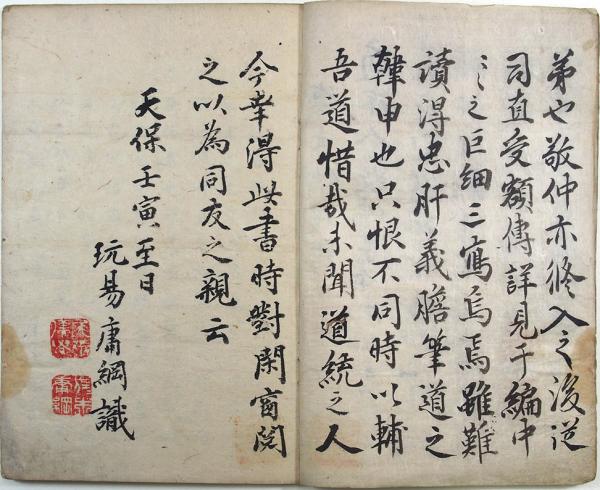 弟也敬仲亦能入之後從
司直受顏傳詳見于編中
之巨細三寫烏焉雖難
讀得忠肝義膽筆道之
韓申也只恨不同時以輔
吾道惜哉未聞道統之人
今幸得此書時對閑窗閱
之以為同友之親云
天保壬寅至日
玩易 庸綱識